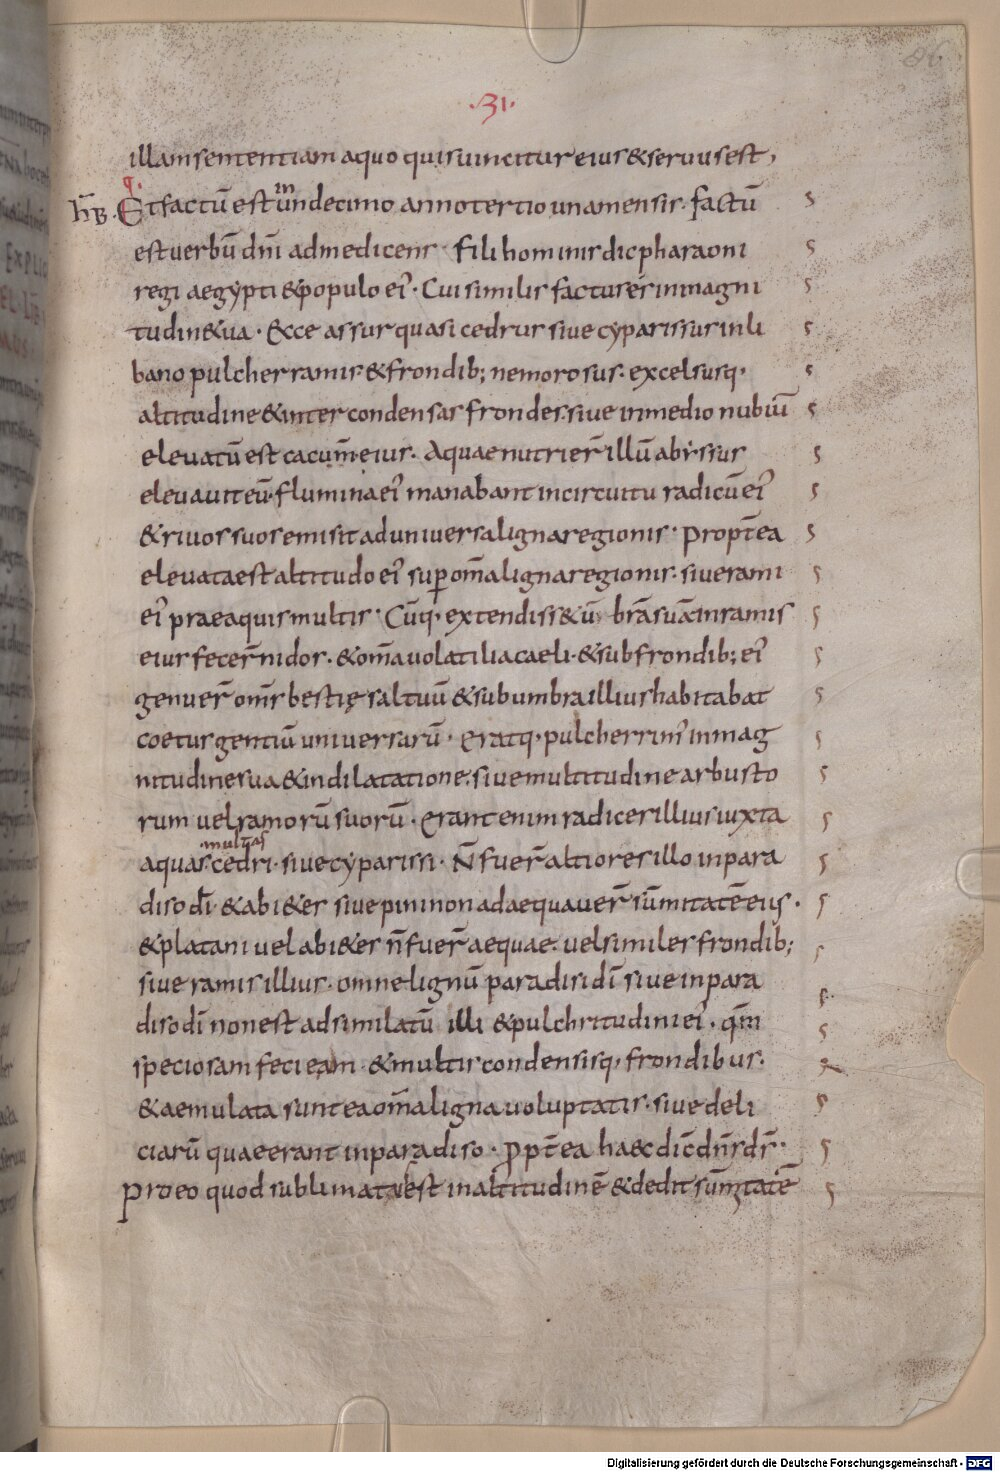 86
·31·
illam sententiam a quo quis uincitur eius & seruus est,
hB. Et factū est in undecimo anno tertio una mensis. factū
est uerbū dn̄i ad me dicens. Fili hominis dic pharaoni
regi aegypti & populo ei'. Cui similis factus es in magni
tudine tua. Ecce assur quasi cedrus siue cyparissus in li
bano pulcher ramis. & frondib; nemorosus. excelsusq.
altitudine & inter condensas frondes. siue in medio nubiū
eleuatū est cacumen eius. Aquae nutrier̄ illū abyssus
eleuauit eū. flumina ei' manabant in circuitu radicū ei'
& riuos suos emisit ad uniuersa ligna regionis. Propt̄ea
eleuata est altitudo ei' sup om̄a ligna regionis. siue rami
ei' prae aquis multis. Cūq. extendiss& ūbrā suā in ramis
eius fecer̄ nidos. & om̄a uolatilia caeli. & sub frondib; ei'
genuer̄ om̄s bestię saltuū & sub umbra illius habitabat
coetus gentiū uniuersarū. Eratq. pulcherrim' in mag
nitudine sua & in dilatatione. siue multitudine arbusto
rum uel ramorū suorū. Erant enim radices illius iuxta
multas
aquas. cedri. siue cyparissi. N̄ fuer̄ altiores illo in para
diso dī. & abi&es siue pini non adaequauer̄ sūmitatē eius.
& platani uel abi&es n̄ fuer̄ aequae. uel similes frondib;
siue ramis illius. omne lignū paradisi dī siue in para
diso dī non est adsimilatū illi & pulchritudini ei'. qm̄
speciosam feci eam. & multis condensisq; frondibus.
& aemulata sunt ea om̄a ligna uoluptatis. siue deli
ciarū quae erant in paradiso. Propt̄ea haec dic̄ dn̄s ds̄.
Pro eo quod sublimatus est in altitudinē & dedit sūmitatē
Digitalisierung gefördert durch die Deutsche Forschungsgemeinschaft · DFG